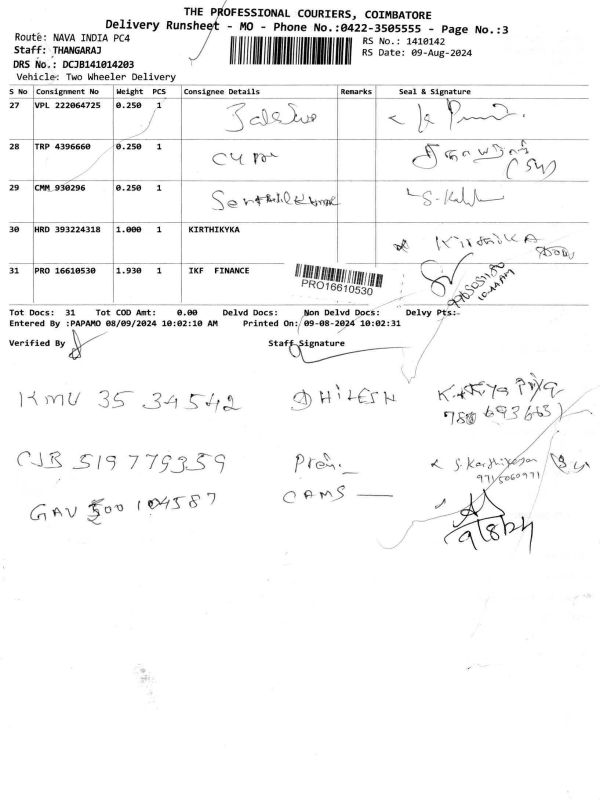 THE PROFESSIONAL COURIERS, COIMBATORE
Delivery Runsheet - MO - Phone No.:0422-3505555 - Page No.:3
Route: NAVA INDIA PC4
RS No.: 1410142
Staff: THANGARAJ
RS Date: 09-Aug-2024
DRS No.: DCJB141014203
Vehicle: Two Wheeler Delivery
S No Consignment No Weight PCS Consignee Details Remarks Seal & Signature
27 VPL 222064725 0.250 1
28 TRP 4396660 0.250 1
29 CMM 930296 0.250 1 Senthil Kumar
30 HRD 393224318 1.000 1 KIRTHIKYKA KIRTHIKA
31 PRO 16610530 1.930 1 IKF FINANCE
PRO16610530
10.44 AM
Tot Docs: 31 Tot COD Amt: 0.00 Delvd Docs: Non Delvd Docs: Delvy Pts:-
Entered By :PAPAMO 08/09/2024 10:02:10 AM Printed On: 09-08-2024 10:02:31
Verified By Staff Signature
KMU 35 34542 DHILESH
CJB 519779359 Prem. S. Karthikeyan
9715060971
GAV 500104587 CAMS
9/8/24